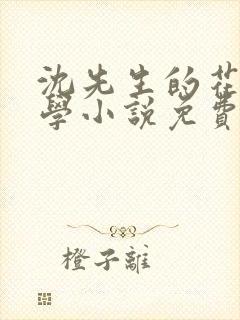 沈先生的花
學小說免費
橙子離